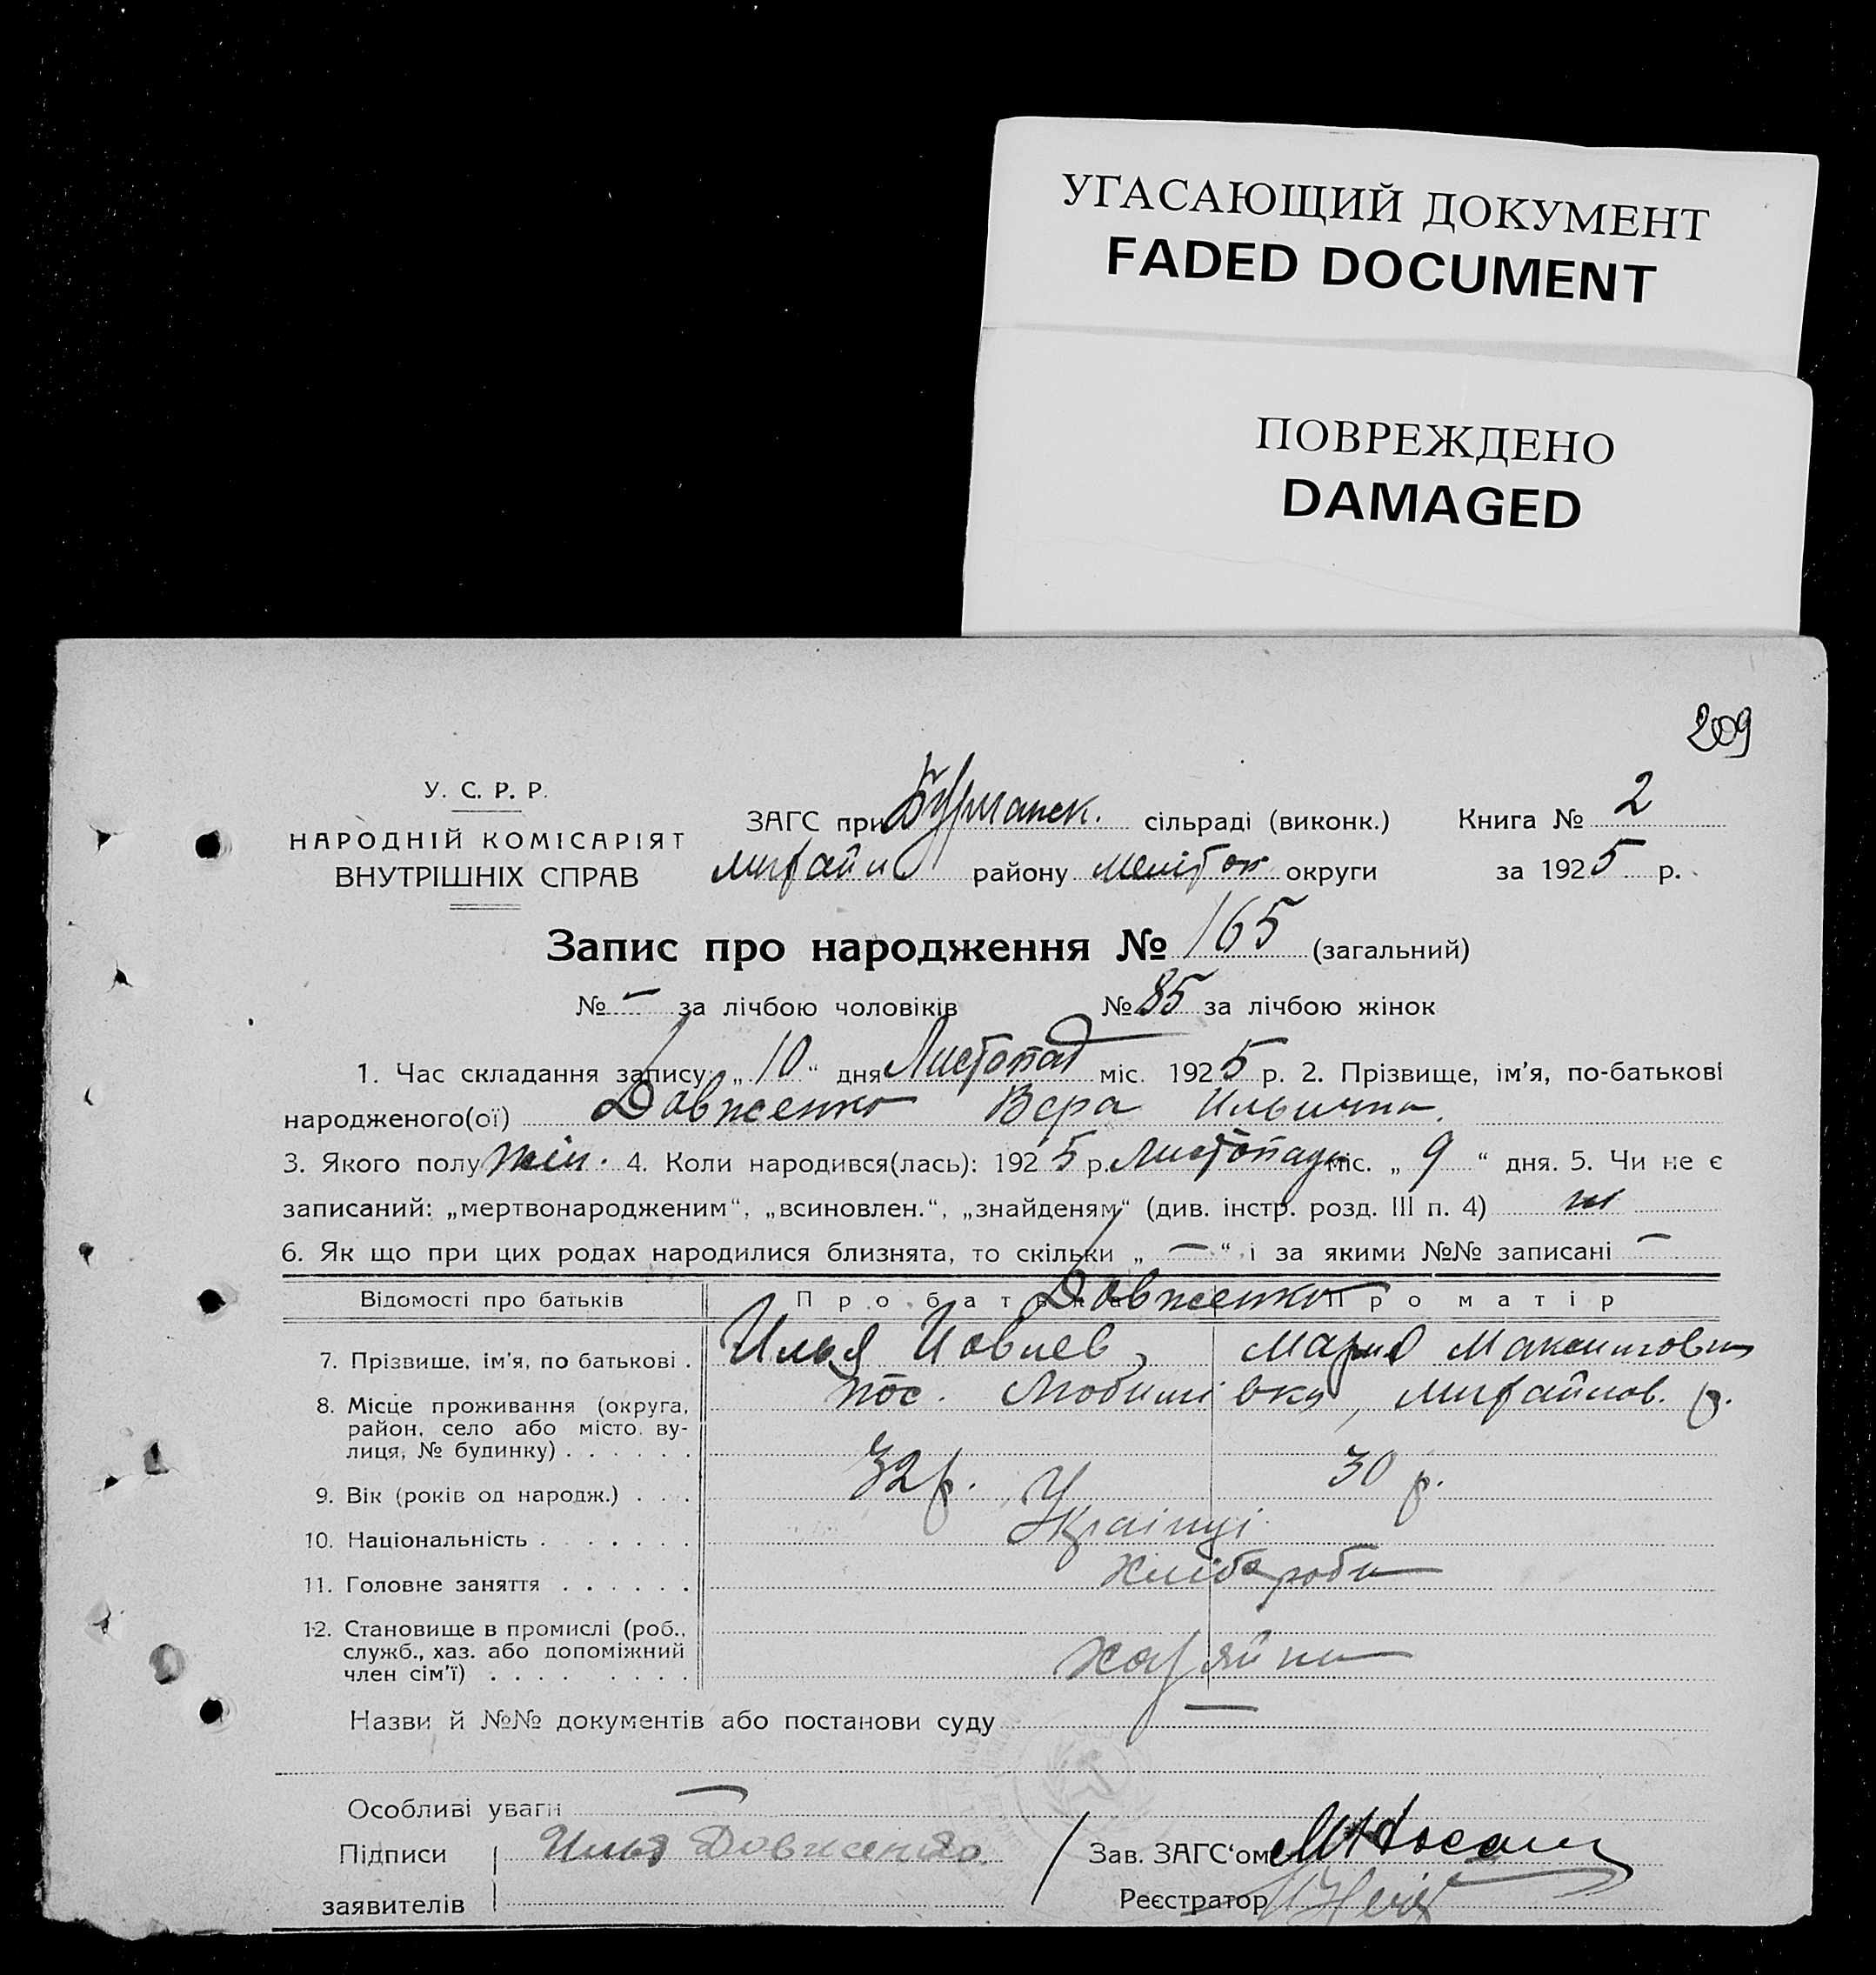 УГАСАЮЩИЙ ДОКУМЕНТ
FADED DOCUMENT
ПОВРЕЖДЕНО
DAMAGED
209
У. С. Р. Р.
НАРОДНІЙ КОМІСАРІЯТ
ВНУТРІШНІХ СПРАВ
ЗАГС при сільраді (виконк.) Книга № 2
району округи за 1925 р.
Запис про народження № 165 (загальний)
№ – за лічбою чоловіків № 85 за лічбою жінок
1. Час складання запису: „10“ дня Листопад міс. 1925 р. 2. Прізвище, ім'я, по-батькові
народженого(ої) Довженко Вера Ильична.
3. Якого полу жін. 4. Коли народився(лась): 1925 р. Листопада міс. „9“ дня. 5. Чи не є
записаний: „мертвонародженим“, „всиновлен.“, „знайденям“ (див. інстр. розд. III п. 4) ні
6. Як що при цих родах народилися близнята, то скільки „–“ і за якими №№ записані –
Відомості про батьків Про батька Про матір
Довженко
7. Прізвище, ім'я, по батькові . Илья Мария Максимовна
8. Місце проживання (округа, пос. Любимівка,
район, село або місто, ву-
лиця, № будинку) . . . . . .
9. Вік (років од народж.) . . . 32 р. 30 р.
10. Національність . . . . . . . Українці
11. Головне заняття . . . . . . Хлібороби
12. Становище в промислі (роб.,
служб., хаз. або допоміжний
член сім'ї) . . . . . . . . Хазяїни
Назви й №№ документів або постанови суду –
Особливі уваги –
Підписи Илья Довженко. Зав. ЗАГС‘ом
заявителів Реєстратор